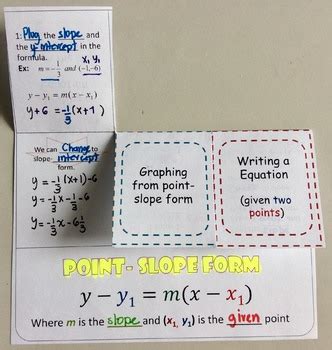 1. Plug the slope and
the y-intercept in the
formula.
x₁ y₁
Ex: m = -1/3 and (-1,-6)
y - y₁ = m(x - x₁)
y+6 = -1/3(x+1)
We can Change to
slope-intercept
form.
y = -1/3(x+1)-6
y = -1/3x-1/3-6
y = -1/3x-6 1/3
Graphing
from point-
slope form
Writing a
Equation
(given two
points)
POINT-SLOPE FORM
y - y₁ = m(x - x₁)
Where m is the slope and (x₁, y₁) is the given point